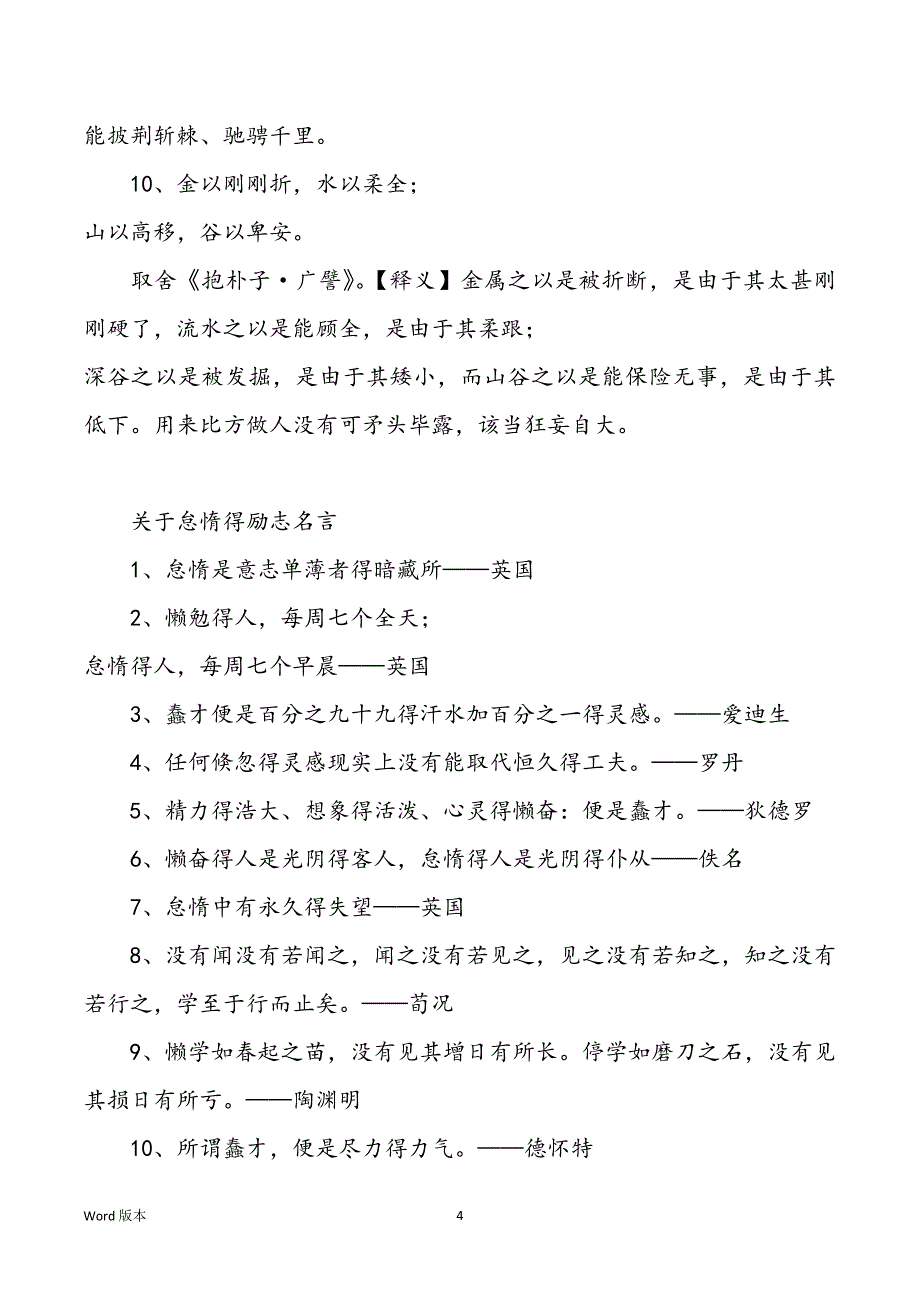 能披荆斩棘、驰骋千里。
10、金以刚刚折，水以柔全；
山以高移，谷以卑安。
取舍《抱朴子·广譬》。【释义】金属之以是被折断，是由于其太甚刚
刚硬了，流水之以是能顾全，是由于其柔跟；
深谷之以是被发掘，是由于其矮小，而山谷之以是能保险无事，是由于其
低下。用来比方做人没有可矛头毕露，该当狂妄自大。
关于怠惰得励志名言
1、怠惰是意志单薄者得暗藏所——英国
2、懒勉得人，每周七个全天；
怠惰得人，每周七个早晨——英国
3、蠢才便是百分之九十九得汗水加百分之一得灵感。——爱迪生
4、任何倏忽得灵感现实上没有能取代恒久得工夫。——罗丹
5、精力得浩大、想象得活泼、心灵得懒奋：便是蠢才。——狄德罗
6、懒奋得人是光阴得客人，怠惰得人是光阴得仆从——佚名
7、怠惰中有永久得失望——英国
8、没有闻没有若闻之，闻之没有若见之，见之没有若知之，知之没有
若行之，学至于行而止矣。——荀况
9、懒学如春起之苗，没有见其增日有所长。停学如磨刀之石，没有见
其损日有所亏。——陶渊明
10、所谓蠢才，便是尽力得力气。——德怀特
Word 版本 4